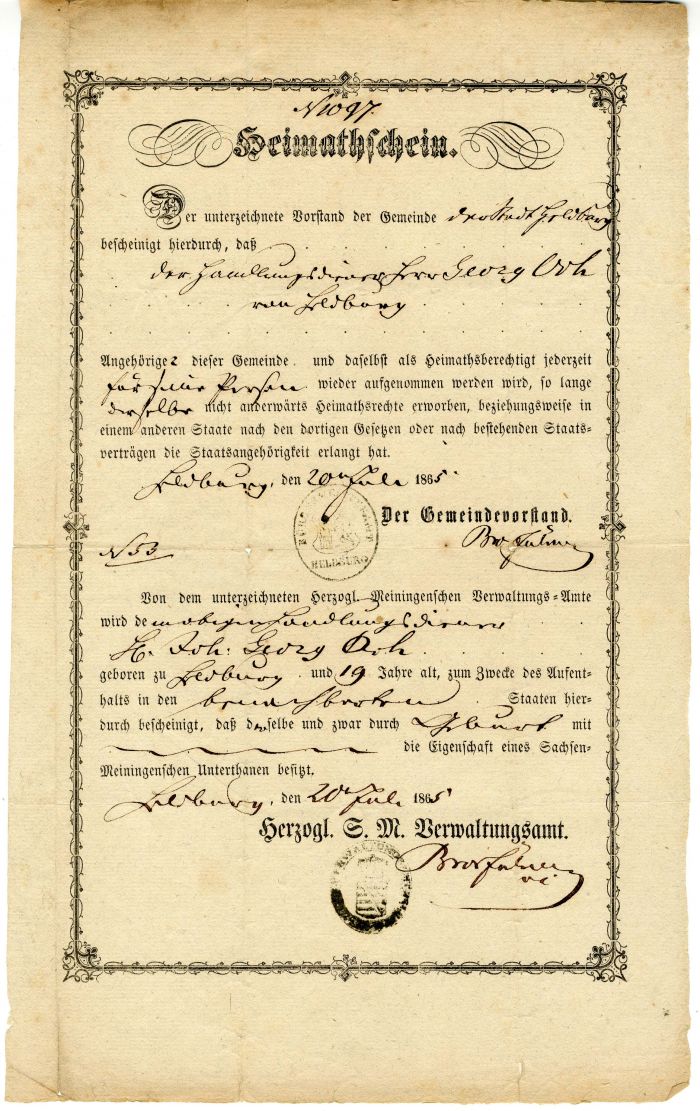 N 1097.
Heimathschein.
Der unterzeichnete Vorstand der Gemeinde der Stadt Heldburg
bescheinigt hierdurch, daß
der Handlungsdiener Herr Georg Och
von Heldburg
Angehöriger dieser Gemeinde und daselbst als Heimathsberechtigt jederzeit
für seine Person wieder aufgenommen werden wird, so lange
derselbe nicht anderwärts Heimathsrechte erworben, beziehungsweise in
einem anderen Staate nach den dortigen Gesetzen oder nach bestehenden Staats-
verträgen die Staatsangehörigkeit erlangt hat.
Heldburg, den 20n Juli 1865
Der Gemeindevorstand.
HELDBURG
N 53
Von dem unterzeichneten Herzogl. Meiningenschen Verwaltungs-Amte
wird dem obigen Handlungsdiener
H. Joh. Georg Och
geboren zu Heldburg und 19 Jahre alt, zum Zwecke des Aufent-
halts in den benachbarten Staaten hier-
durch bescheinigt, daß derselbe und zwar durch Geburt mit
die Eigenschaft eines Sachsen-
Meiningenschen Unterthanen besitzt.
Heldburg, den 20n Juli 1865
Herzogl. S. M. Verwaltungsamt.